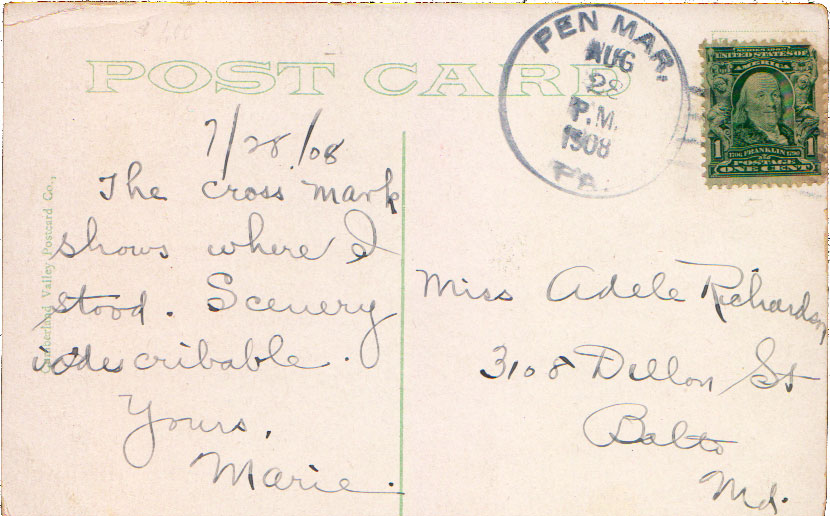 POST CARD
PEN MAR.
AUG
28
P.M.
1908
PA.
UNITED STATES OF
AMERICA
1 1
1706 FRANKLIN 1790
POSTAGE
ONE CENT
Cumberland Valley Postcard Co.,
7/28/08
The cross mark
shows where I
stood. Scenery
indescribable.
Yours,
Marie.
Miss Adele Richardson
3108 Dillon St
Balto
Md.